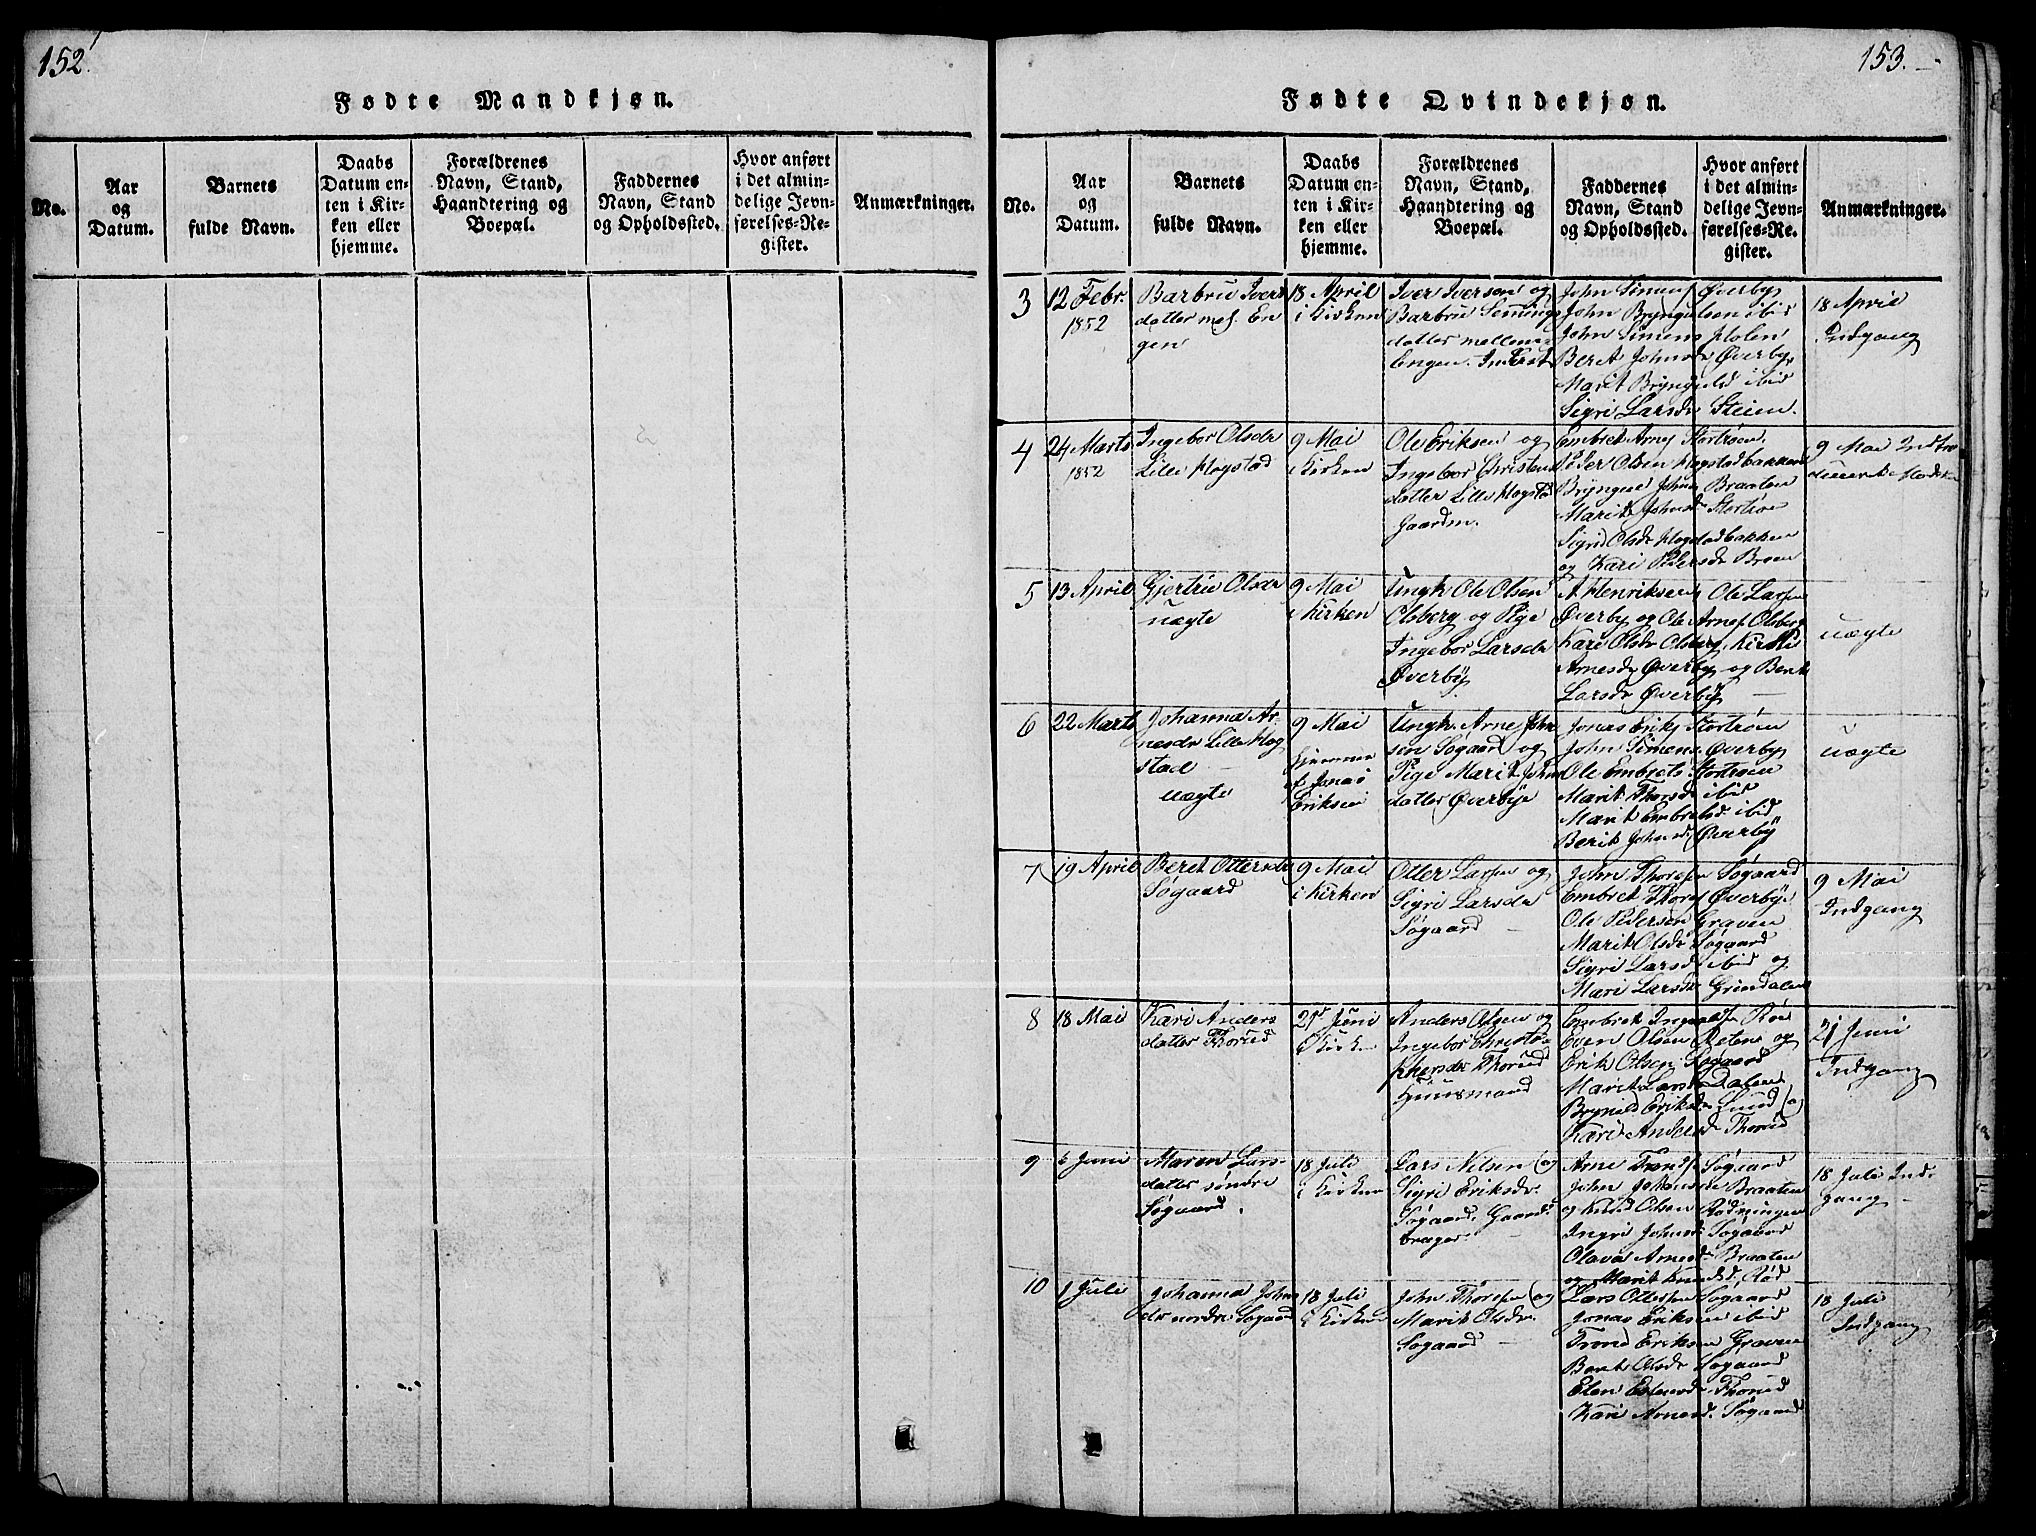 152.
Fødte Mandkjøn.
No.
Aar
og
Datum.
Barnets
fulde Navn.
Daabs
Datum en-
ten i Kir-
ken eller
hjemme.
Forældrenes
Navn, Stand,
Haandtering og
Boepæl.
Faddernes
Navn, Stand
og Opholdssted.
Hvor anført
i det almin-
delige Jevn-
førelses-Re-
gister.
Anmærkninger.
153.
Fødte Qvindekjøn.
No.
Aar
og
Datum.
Barnets
fulde Navn.
Daabs
Datum en-
ten i Kir-
ken eller
hjemme.
Forældrenes
Navn, Stand,
Haandtering og
Boepæl.
Faddernes
Navn, Stand
og Opholdssted.
Hvor anført
i det almin-
delige Jevn-
førelses-Re-
gister.
Anmærkninger.
3
12 Febr.
1852
Barbru Ivers
datter mel. En
gen
18 April
i Kirken
Iver Iversen og
Barbru Simens
datter mellem
Engen.
John Simens Øverby
John Bryngelsen ibid
John Simens Holen
Beret Johnsdr Øverby
Marit Bryngelsd ibid
Sigri Larsdr Steien.
18 April
Indgang
4
24 Marts
1852
Ingebor Olsdr
Lille Hogstad
9 Mai
i Kirken
Ole Eriksen og
Ingebor Christens
datter Lille Hogstad
Gaardm.
Embret Arnes Stortrøen
Peder Olsen Hogstadbakken
Bryngel Johns Braaten
Marit Johnsdr Stortrøe
Sigrid Olsdr Hogstadbakken
og Kari Pedersdr Broen
9 Mai Indtro
5
13 April
Gjertrud Olsdr
uægte
9 Mai
i Kirken
Ungk Ole Olsen
Olsberg og Pige
Ingebor Larsdr
Øverby
A Henriksen Ole Larsen
Øverby og Ole Arnes Olsberg
Kari Olsdr Olsberg, Kirsti
Arnesdr Øverby og Berit
Larsdr Øverby
uægte
6
22 Marts
Johanna Ar-
nesdr Lille Hog
stad
uægte
9 Mai
hjemme
af Jonas
Eriksen
Ungk. Arne John
sen Søgaard og
Pige Marit Johns
datter Øverbye
Jonas Eriks Stortrøen
John Simens. Øverby
Ole Embrets Stortrøen
Marit Thorsdr ibid
Marit Embretsd ibid
Berit Johnsd Øverby
uægte
7
19 April
Beret Ottersdr
Søgaard
9 Mai
i Kirken
Otter Larsen og
Sigri Larsdr
Søgaard
John Thoresen Søgaard
Embret Thores Øverbye
Ole Pedersen Graven
Marit Olsdr Søgaard
Sigri Larsd ibid og
Mari Larsdr Grindalen
9 Mai
Indgang
8
18 Mai
Kari Anders
datter Thorud
21 Juni
i Kirken
Anders Olsen og
Ingebor Christo-
phersdr Thorud
Huusmand
Embret Ingvaldsen Røe
Even Olsen og
Erik Olsen Søgaard
Marit Larsdr Dalen
Eriksdr Lund og
Kari Andersd. Thorud
21 Juni
Indgang
9
6 Juni
Maren Lars-
datter søndre
Søgaard.
18 Juli
i Kirken
Lars Nilsen og
Sigri Eriksdr.
Søgaard, Gaard-
bruger
Arne Trondsen Søgaard
John Johansen Braaten
og Knud Olsen Rødningen
Ingri Johnsd Søgaard
Olava Arnesd. Braaten
og Marit Knudsd. Rød
18 Juli Ind-
gang
10
1 Juli
Johanna Johns
dr nordre Søgaard
18 Juli
i Kirken
John Thoresen og
Marit Olsdr.
Søgaard
Lars Ottersen Søgaard
Jonas Eriksen ibid
Trond Eriksen Graven
Beret Olsdr Søgaard
Thorud
Kari Arnesd. Søgaard
18 Juli
Indgang